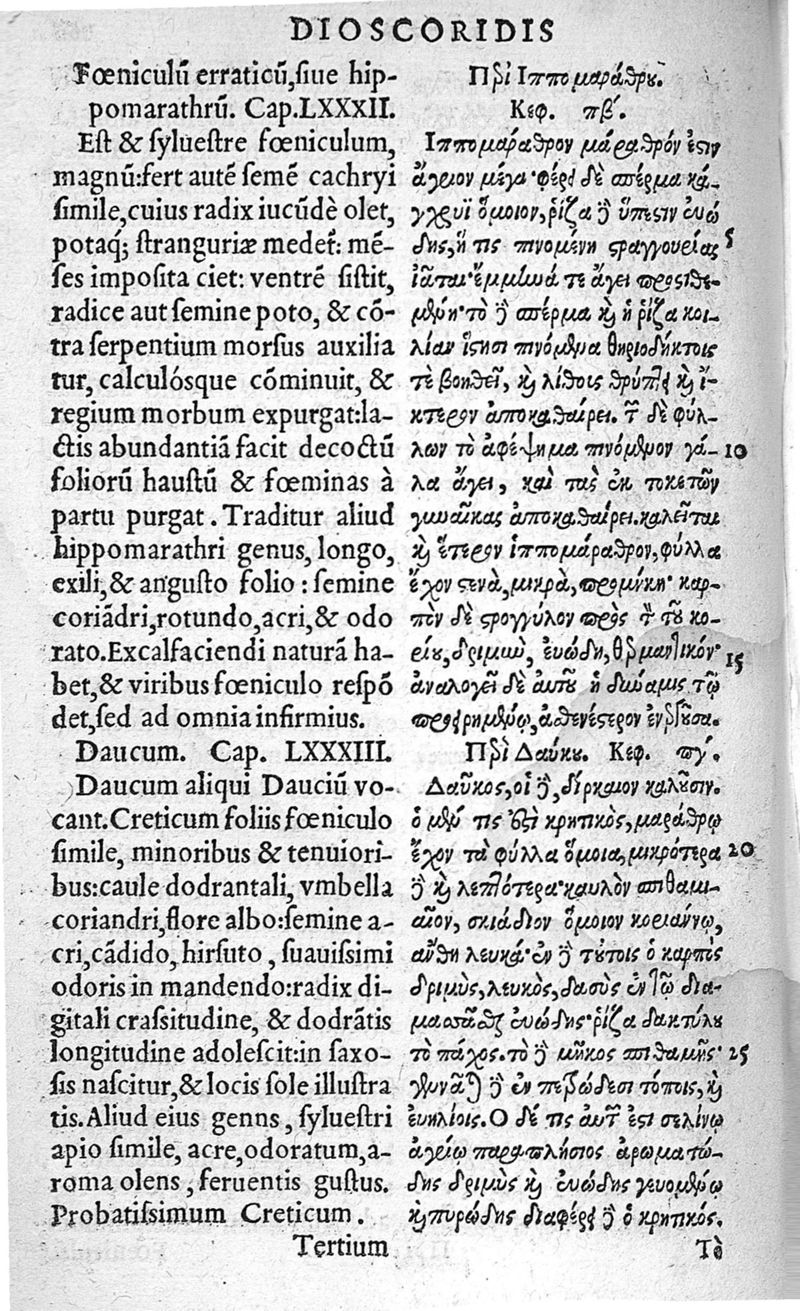 DIOSCORIDIS
Fœniculũ erraticũ,ſiue hip-
pomarathrũ. Cap.LXXXII.
Eſt & ſylueſtre fœniculum,
magnũ:fert autẽ ſemẽ cachryi
ſimile,cuius radix iucũdè olet,
potaq́; ſtranguriæ medet̃: mẽ-
ſes impoſita ciet: ventrẽ ſiſtit,
radice aut ſemine poto, & cõ-
tra ſerpentium morſus auxilia
tur, calculóſque cõminuit, &
regium morbum expurgat:la-
ctis abundantiã facit decoctũ
foliorũ hauſtũ & fœminas à
partu purgat. Traditur aliud
hippomarathri genus, longo,
exili,& anguſto folio : ſemine
coriãdri,rotundo,acri,& odo
rato.Excalfaciendi naturã ha-
bet,& viribus fœniculo reſpõ
det,ſed ad omnia infirmius.
Daucum. Cap. LXXXIII.
Daucum aliqui Dauciũ vo-
cant.Creticum foliis fœniculo
ſimile, minoribus & tenuiori-
bus:caule dodrantali, vmbella
coriandri,flore albo:ſemine a-
cri,cãdido, hirſuto, ſuauiſsimi
odoris in mandendo:radix di-
gitali craſsitudine, & dodrãtis
longitudine adoleſcit:in ſaxo-
ſis naſcitur,& locis ſole illuſtra
tis.Aliud eius genns, ſylueſtri
apio ſimile, acre,odoratum,a-
roma olens, feruentis guſtus.
Probatiſsimum Creticum.
Tertium
Περὶ Ἱππομαράθρου.
Κεφ. πβ΄.
Ἱππομάραθρον μάραθρόν ἐϛιν
ἄγριον μέγα· φέρει δὲ σπέρμα κά-
γχρυϊ ὅμοιον, ῥίζα δὲ ὕπεϛιν εὐώ
δης, ἥ τις πινομένη ϛραγγουρίας 5
ἰᾶται· ἔμμηνά τε ἄγει προϛιθε-
μένη· τὸ δὲ σπέρμα καὶ ἡ ῥίζα κοι-
λίαν ἵϛησι πινόμενα θηριοδήκτοις
τὲ βοηθεῖ, καὶ λίθοις θρύπτει καὶ ἴ-
κτερον ἀποκαθαίρει. τῶν δὲ φύλ-
λων τὸ ἀφέψημα πινόμενον γά- 10
λα ἄγει, καὶ τὰς ἐκ τοκετῶν
γυναῖκας ἀποκαθαίρει. καλεῖται
καὶ ἕτερον ἱππομάραθρον, φύλλα
ἔχον ϛενὰ, μικρὰ, προμήκη· καρ-
πὸν δὲ ϛρογγύλον πρὸς τὸν τοῦ κο-
ρίου, δριμὺν, εὐώδη, θερμαντικόν· 15
ἀναλογεῖ δὲ αὐτοῦ ἡ δύναμις τῷ
προειρημένῳ, ἀσθενέϛερον ἐνεργοῦσα.
Περὶ Δαύκου. Κεφ. πγ΄.
Δαῦκος, οἱ δὲ, δίρκαιον καλοῦσιν.
ὁ μέν τις ἐϛὶ κρητικὸς, μαράθρῳ
ἔχον τὰ φύλλα ὅμοια, μικρότερα 20
δὲ καὶ λεπτότερα· καυλὸν σπιθαμι-
αῖον, σκιάδιον ὅμοιον κοριάννῳ,
ἄνθη λευκά· ἐν δὲ τούτοις ὁ καρπὸς
δριμὺς, λευκὸς, δασὺς ἐν τῷ δια-
μασᾶσθαι εὐώδης· ῥίζα δακτύλου
τὸ πάχος. τὸ δὲ μῆκος σπιθαμῆς· 25
γεννᾶται δὲ ἐν πετρώδεσι τόποις, καὶ
εὐηλίοις. Ὁ δέ τις αὐτῶν ἐϛι σελίνῳ
ἀγρίῳ παραπλήσιος ἀρωματώ-
δης δριμὺς καὶ εὐώδης γευομένῳ
καὶ πυρώδης διαφέρει δὲ ὁ κρητικός.
Τὸ